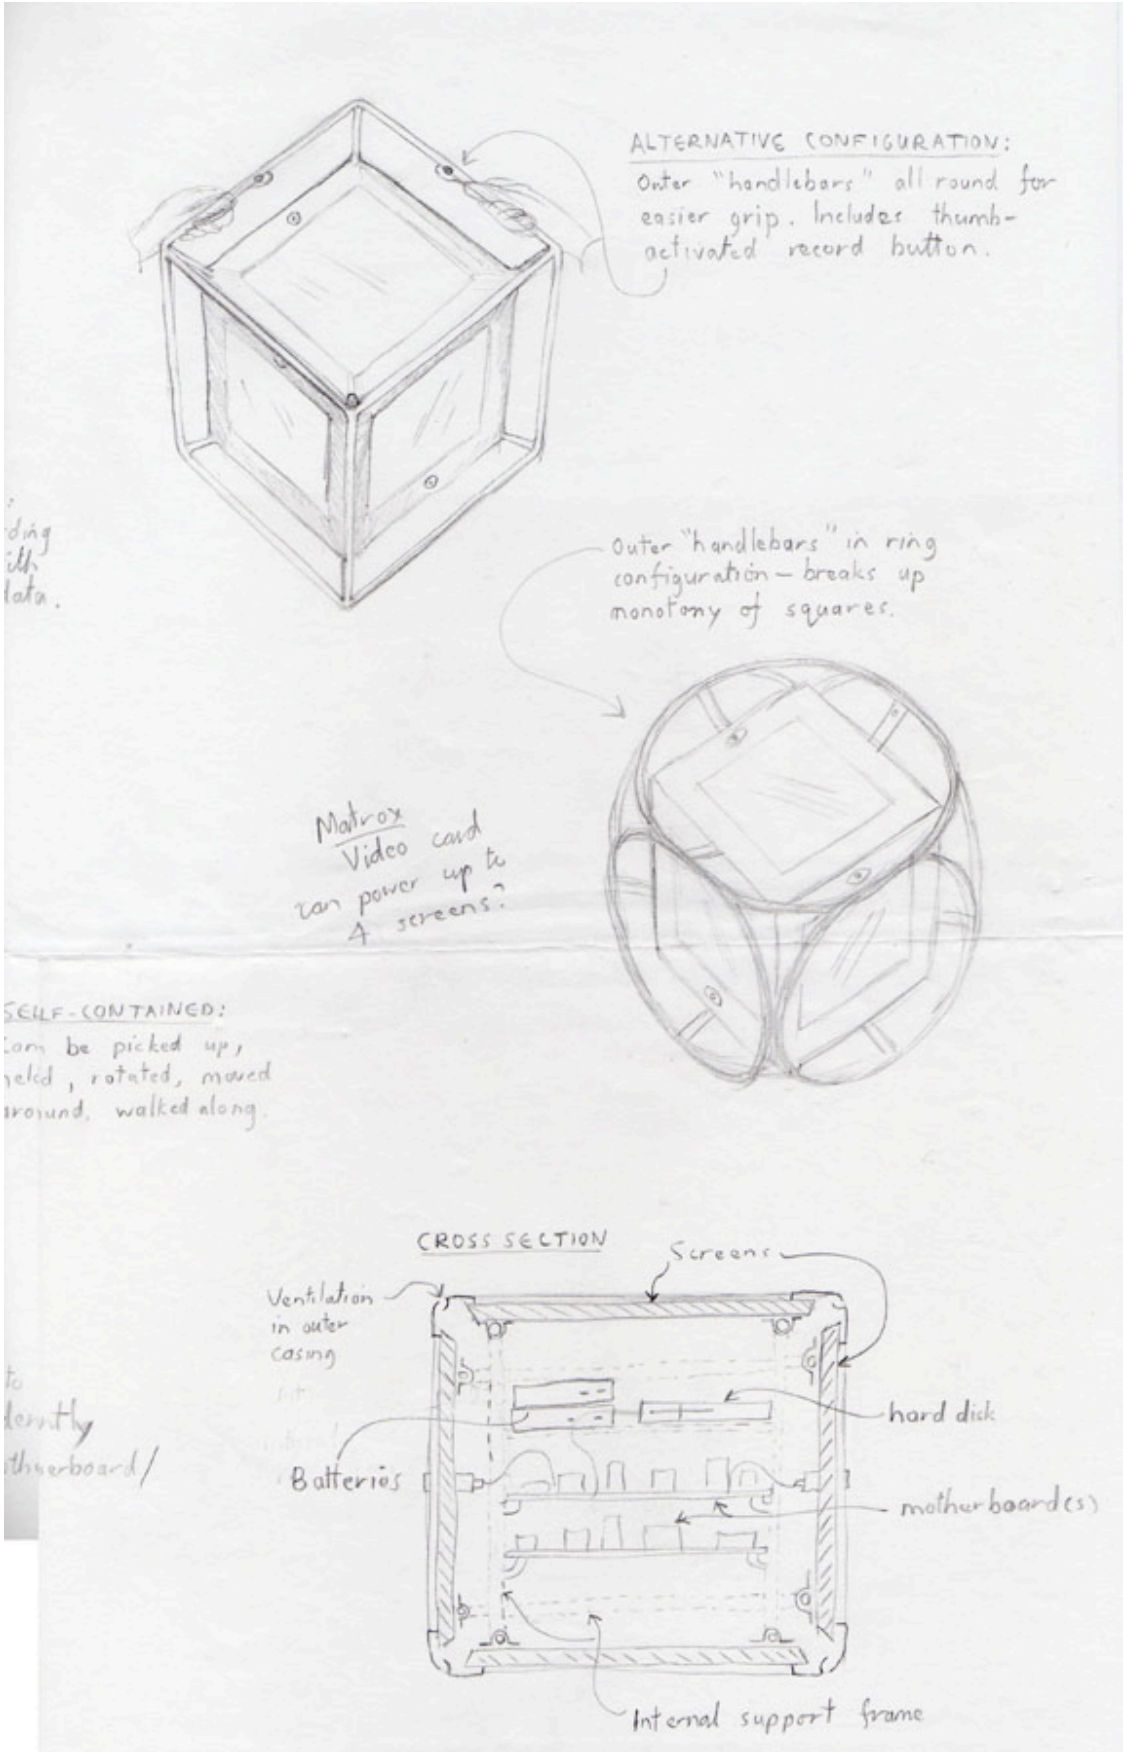 ALTERNATIVE CONFIGURATION:
Outer "handlebars" all round for
easier grip. Includes thumb-
activated record button.
:
ding
ith
data.
Outer "handlebars" in ring
configuration – breaks up
monotony of squares.
Matrox
Video card
can power up to
4 screens?
SELF-CONTAINED:
can be picked up,
held, rotated, moved
around, walked along.
CROSS SECTION
Screens
Ventilation
in outer
casing
to
dently
otherboard/
hard disk
Batteries
motherboard(s)
Internal support frame